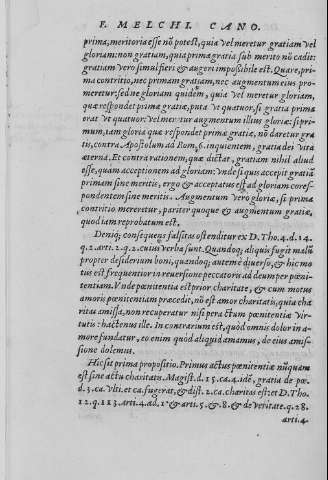 F. MELCHI. CANO.
prima, meritoria esse nõ potest, quia vel meretur gratiam vel
gloriam: non gratiam, quia prima gratia sub merito nõ cadit:
gratiam vero simul fieri & augeri impossibile est. Quare, pri-
ma contritio, nec primam gratiam, nec augmentum eius pro-
meretur: sed ne gloriam quidem, quia vel meretur gloriam,
quæ respondet primæ gratiæ, puta vt quatuor, si gratia prima
erat vt quatuor: vel meretur augmentum illius gloriæ: si pri-
mum, tam gloria quæ respondet primæ gratiæ, nõ daretur gra
tis, contra Apostolum ad Rom. 6. inquientem, gratia dei vita
æterna. Et contra rationem, quæ dictat, gratiam nihil aliud
esse, quam acceptionem ad gloriam: vnde si quis accepit gratiã
primam sine meritis, ergo & acceptatus est ad gloriam cores-
pondentem sine meritis. Augmentum vero gloriæ, si prima
contritio mereretur, pariter quoque & augmentum gratiæ,
quod iam reprobatum est.
Deniq; consequens falsitas ostenditur ex D. Tho. 4. d. 14.
q. 2. arti. 2. q. 2. cuius verba sunt. Quandoq; aliquis fugit malũ
propter desiderium boni, quandoq; autem è diuerso, & hic mo
tus est frequentior in reuersione peccatoris ad deum per pœni-
tentiam. Vnde pœnitentia est prior charitate, & cum motus
amoris pœnitentiam præcedit, nõ est amor charitatis, quia cha
ritas amissa, non recuperatur nisi per actum pœnitentiæ vir-
tutis: hactenus ille. In contrarium est, quod omnis dolor in a-
more fundatur, eo enim quod aliquid amamus, de eius amis-
sione dolemus.
Hic sit prima propositio. Primus actus pœnitentiæ nũquam
est sine actu charitatis. Magist. d. 15. ca. 4. idẽ, gratia de pœ.
d. 3. ca. Vlti. et ca. fugerat, & dist. 2. ca. charitas est: et D. Tho.
12. q. 113. arti. 4. ad. 1. & arti. 5. & 8. & de veritate. q. 28.
arti. 4.